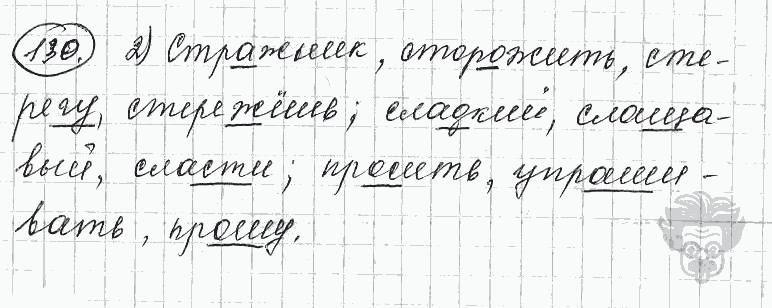 130. 2) Стражник, сторожить, сте-
регу, стережёшь; сладкий, слаща-
вый, сласти; просить, упраши-
вать, прошу.